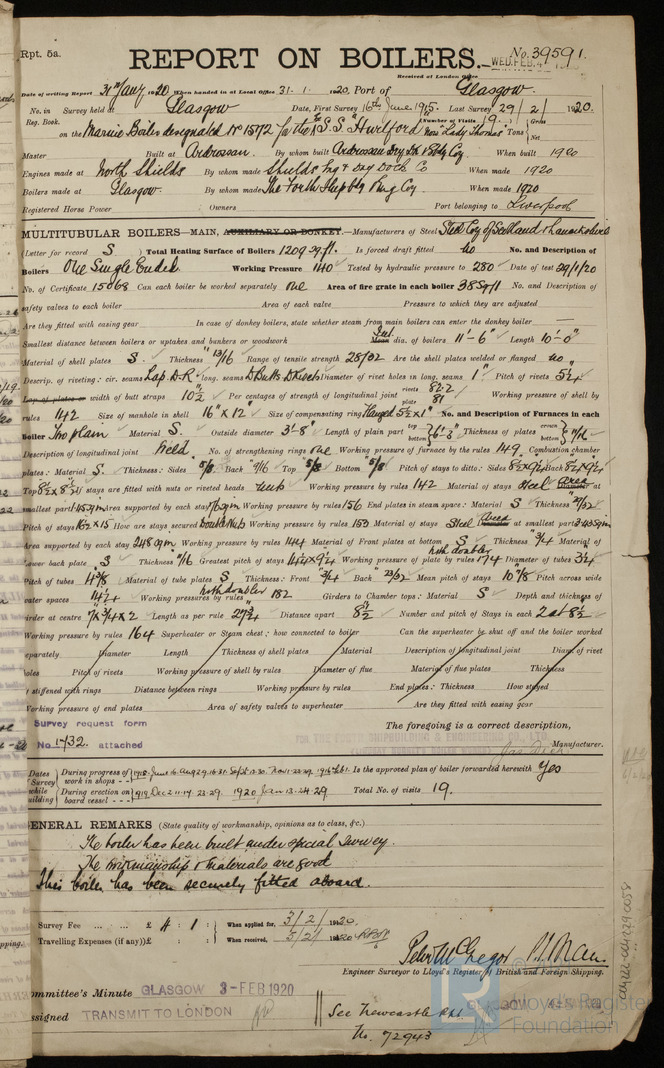 Rpt. 5a.
REPORT ON BOILERS.
No. 39591.
WED. FEB. 4
Received at London Office
Date of writing Report 31st Jany 1920 When handed in at Local Office 31. 1. 1920. Port of Glasgow
No. in Survey held at Glasgow Date, First Survey 16th June 1915. Last Survey 29/2/1920.
Reg. Book. (Number of Visits 19.) Gross
on the Marine Boiler designated No 15172 for the S.S. "Hurlford" Now "Lady Thomas" Tons Net
Master Built at Ardrossan. By whom built Ardrossan Dry Dk & Sbdg Coy When built 1920
Engines made at North Shields By whom made Shields Eng & Dry Dock Co When made 1920
Boilers made at Glasgow. By whom made The Forth Shipbdg & Eng Coy. When made 1920
Registered Horse Power Owners Port belonging to Liverpool
MULTITUBULAR BOILERS—MAIN, AUXILIARY OR DONKEY.—Manufacturers of Steel Steel Coy of Scotland & Lanarkshire
(Letter for record S) Total Heating Surface of Boilers 1209 sq ft. Is forced draft fitted no No. and Description of
Boilers One Single Ended Working Pressure 140 Tested by hydraulic pressure to 280 Date of test 29/1/20
No. of Certificate 15068 Can each boiler be worked separately one Area of fire grate in each boiler 38 sq ft No. and Description of
safety valves to each boiler Area of each valve Pressure to which they are adjusted
Are they fitted with easing gear In case of donkey boilers, state whether steam from main boilers can enter the donkey boiler —
Smallest distance between boilers or uptakes and bunkers or woodwork Int. Mean dia. of boilers 11'-6" Length 10'-0"
Material of shell plates S. Thickness 13/16 Range of tensile strength 28/32 Are the shell plates welded or flanged no
Descrip. of riveting: cir. seams Lap D.R. long. seams D Butts D Rivets Diameter of rivet holes in long. seams 1" Pitch of rivets 5 1/4
Lap of plates or width of butt straps 10 1/2 Per centages of strength of longitudinal joint rivets 82.2 plate 81 Working pressure of shell by
rules 142 Size of manhole in shell 16" x 12" Size of compensating ring Flanged 5 1/2 x 1" No. and Description of Furnaces in each
Boiler Two plain Material S. Outside diameter 3'-8" Length of plain part top bottom 6'-3" Thickness of plates crown bottom 11/16
Description of longitudinal joint Weld. No. of strengthening rings one Working pressure of furnace by the rules 149 Combustion chamber
plates: Material S. Thickness: Sides 5/8 Back 9/16 Top 5/8 Bottom 5/8 Pitch of stays to ditto: Sides 8 1/2 x 9 1/4 Back 8 1/2 x 9 1/4
Top 8 1/2 x 8 1/2 If stays are fitted with nuts or riveted heads nuts Working pressure by rules 142 Material of stays steel Area Diameter at
smallest part Area supported by each stay Working pressure by rules 156 End plates in steam space: Material S Thickness 27/32
Pitch of stays 16 1/2 x 15 How are stays secured Double Nuts Working pressure by rules 153 Material of stays Steel Area Diameter at smallest part
Area supported by each stay 248 sq in Working pressure by rules 144 Material of Front plates at bottom S Thickness 3/4 Material of
Lower back plate S Thickness 11/16 Greatest pitch of stays 14 1/4 x 9 1/4 Working pressure of plate by rules with doubler 174 Diameter of tubes 3 1/4
Pitch of tubes 4 3/8 Material of tube plates S Thickness: Front 3/4 Back 23/32 Mean pitch of stays 10 7/8 Pitch across wide
water spaces 14 1/4 Working pressures by rules with doubler 182 Girders to Chamber tops: Material S Depth and thickness of
girder at centre 7 x 3/4 x 2 Length as per rule 27 3/4 Distance apart 8 1/2 Number and pitch of Stays in each 2 at 8 1/2
Working pressure by rules 164 Superheater or Steam chest; how connected to boiler Can the superheater be shut off and the boiler worked
separately Diameter Length Thickness of shell plates Material Description of longitudinal joint Diam. of rivet
holes Pitch of rivets Working pressure of shell by rules Diameter of flue Material of flue plates Thickness
If stiffened with rings Distance between rings Working pressure by rules End plates: Thickness How stayed
Working pressure of end plates Area of safety valves to superheater Are they fitted with easing gear
Survey request form
No. 1732. attached
The foregoing is a correct description,
FOR THE FORTH SHIPBUILDING & ENGINEERING CO., LTD.
Manufacturer.
Dates of Survey while building
During progress of work in shops - -
During erection on board vessel - - - 1919 Dec 2. 11. 17. 23. 29. 1920 Jan 13. 24. 29
Is the approved plan of boiler forwarded herewith Yes
Total No. of visits 19.
GENERAL REMARKS (State quality of workmanship, opinions as to class, &c.)
The boiler has been built under special survey.
The workmanship & materials are good
This boiler has been securely fitted aboard.
Survey Fee ... ... £ 4 : 1 : When applied for, 3/2/1920.
Travelling Expenses (if any) £ : : When received, 3/2/1920
Peter McGregor
Engineer Surveyor to Lloyd's Register of British and Foreign Shipping.
Committee's Minute GLASGOW 3-FEB 1920
Assigned TRANSMIT TO LONDON
See Newcastle Rpt
No. 72943
LR
Lloyd's Register
Foundation